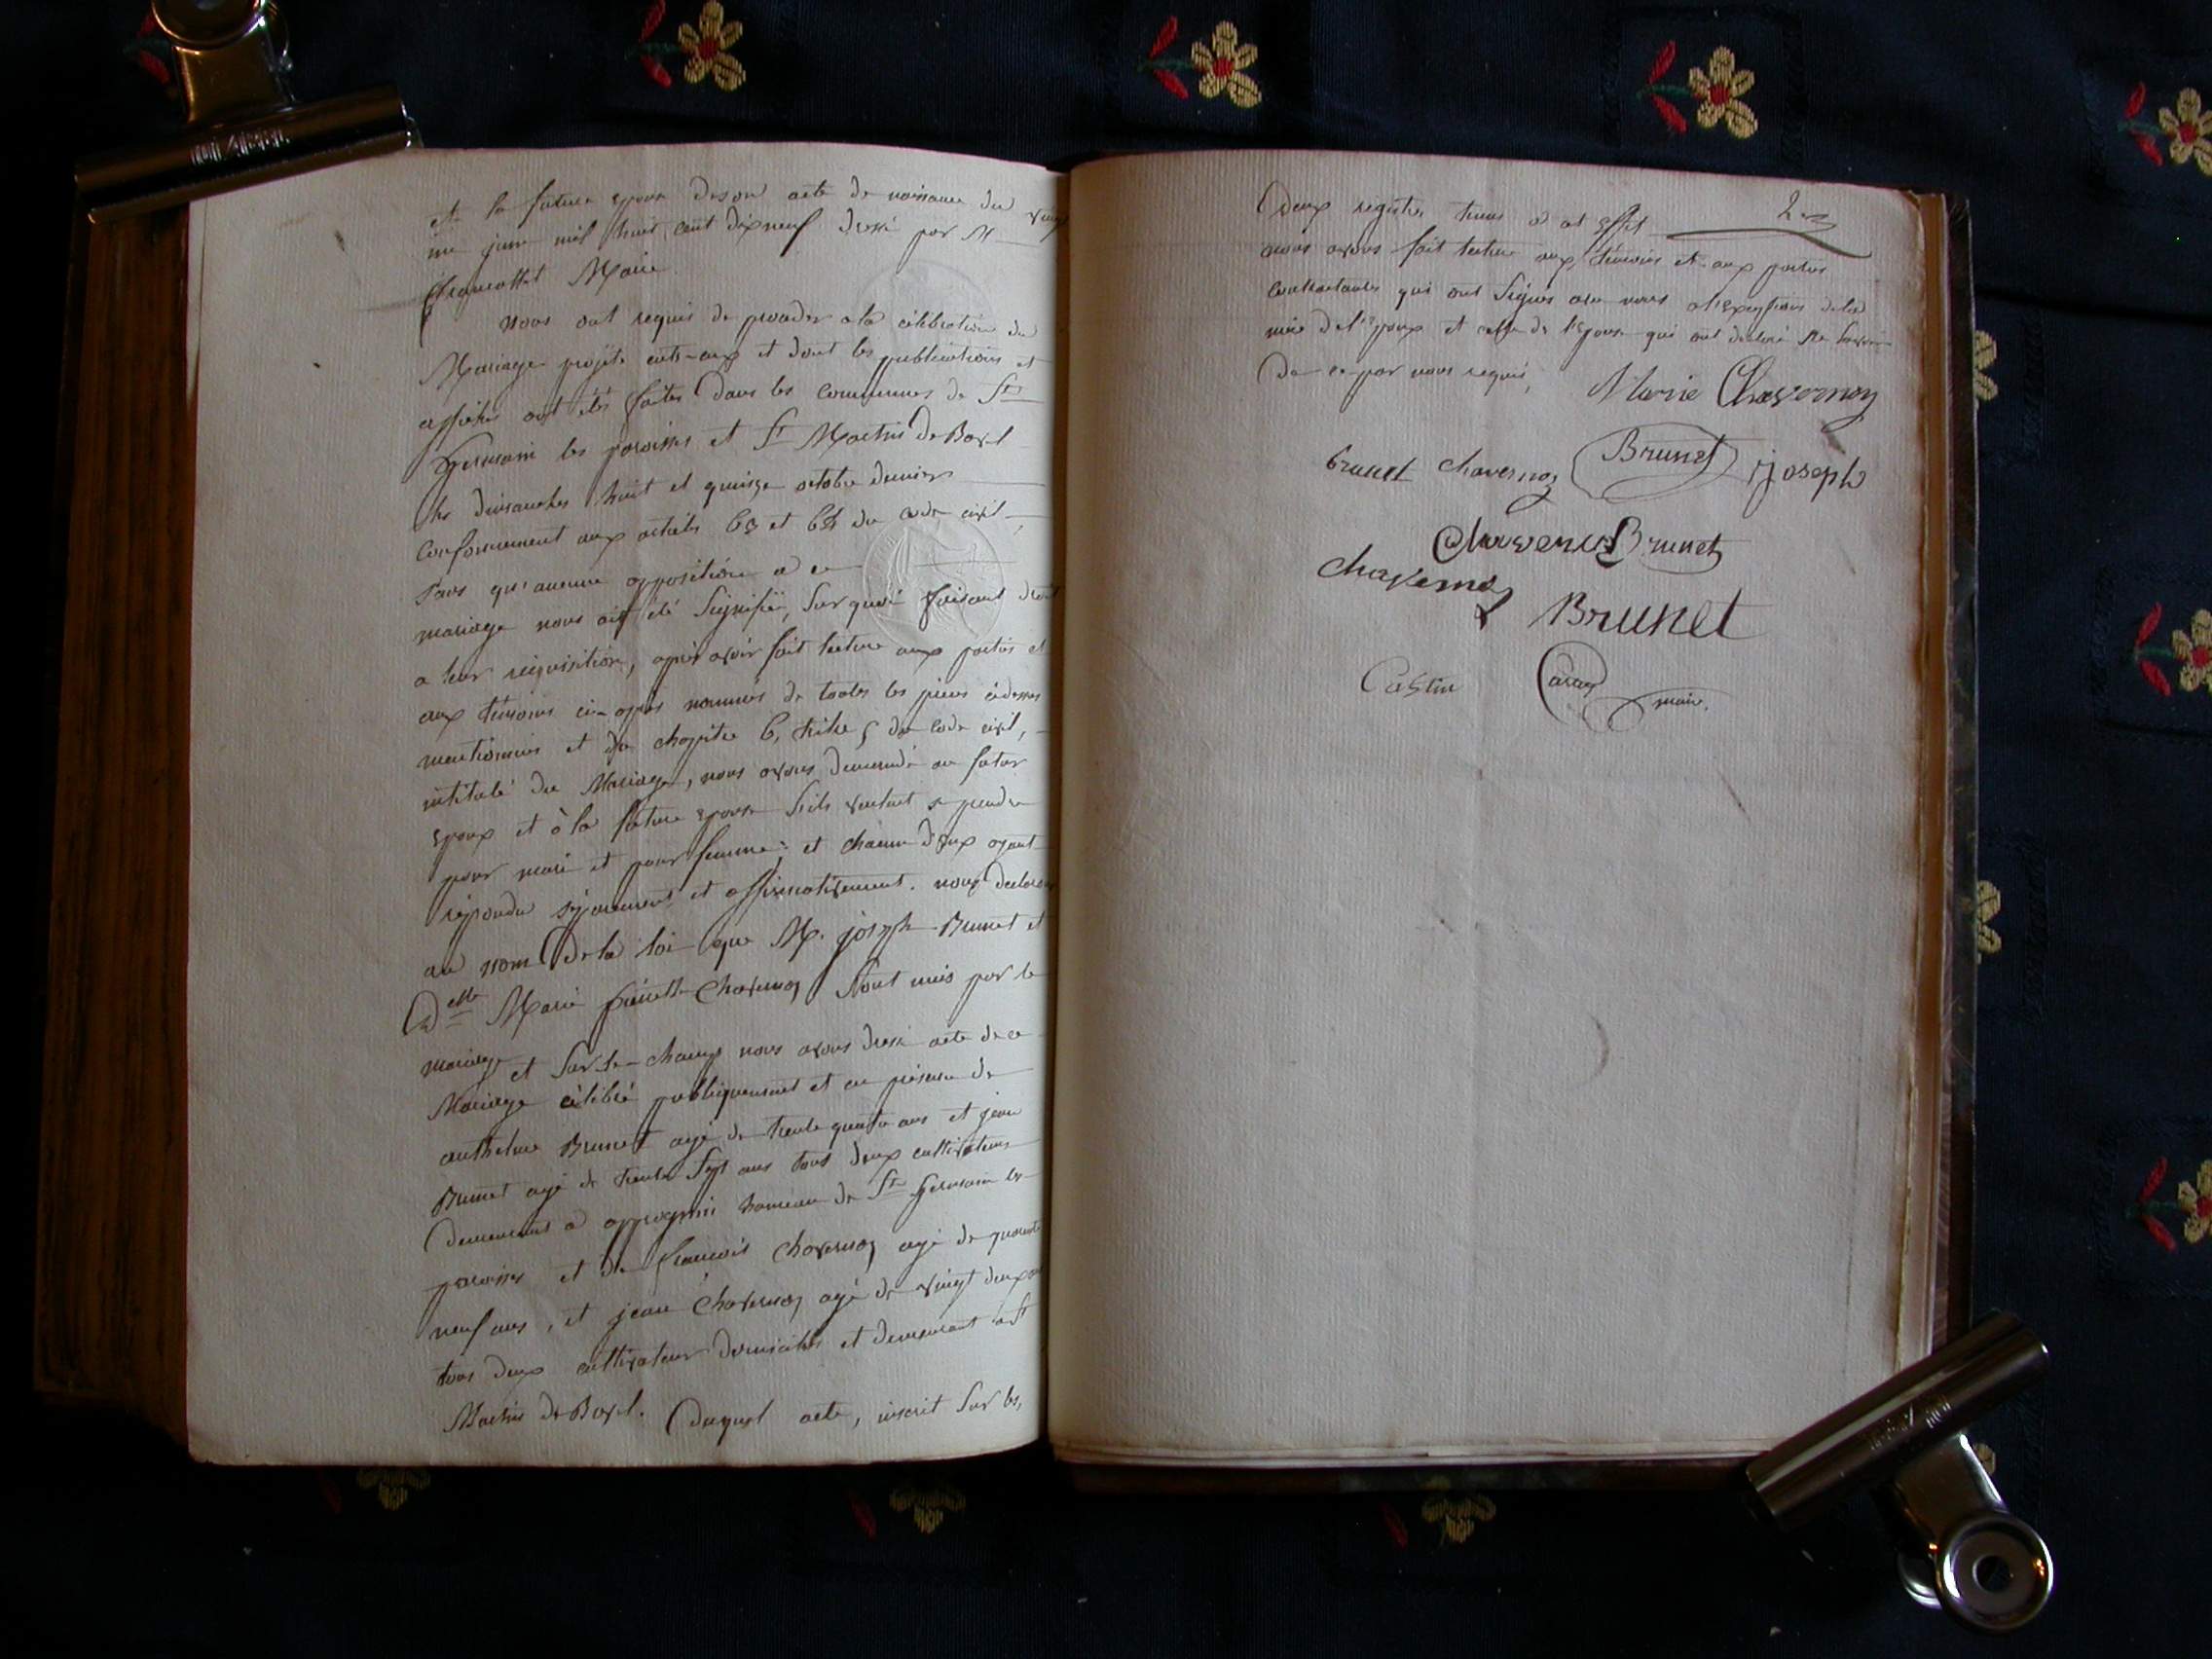 et la future epouse deson acte de naissance du vingt
un juin mil huit cent dixneuf dressé par M
Maire
nous ont requis de proceder a la célébration du
Mariage projété entr-eux et dont les publications et
affiches ont étés faites Dans les communes de St
Germain les paroisses et St Martin de Bavel
les dimanches huit et quinze octobre dernier
Conformement aux articles 63 et 64 du code civil,
sans qu'aucune opposition a ce
mariage nous ait été signifiée, sur quoi faisant droit
a leur réquisition, après avoir fait lecture aux parties et
aux témoins ci-après nommés de toutes les pièces cidessus
mentionnées et du chapitre 6, titre 5 du code civil,
intitulé du Mariage, nous avons demandé au futur
epoux et à la future epouse s'ils veulent se prendre
pour mari et pour femme: et chacun d'eux ayant
répondu séparement et affirmativement. nous declarons
au nom de la loi que M. joseph Brunet et
Delle Marie Chavernoz sont unis par le
mariage et sur-le-champ nous avons dressé acte de ce
Mariage célébré publiquement et en présence de
anthelme Brunet agé de trente quatre ans et jean
Brunet agé de trente sept ans tous deux cultivateurs
Demeurant a hameau de St Germain les
paroisses et de françois Chavernoz agé de quarante
neuf ans, et jean Chavernoz agé de vingt deux ans
tous deux cultivateur domiciliés et demeurant a St
Martin de Bavel. Duquel acte, inscrit sur les
Deux registres tenus a cet effet
nous avons fait lecture aux témoins et aux parties
contractantes qui ont signés avec nous a l'exception de la
mère de l'epoux et celle de l'epouse qui ont déclaré ne savoir
De ce par nous requis,
Marie Chavernoz
brunet chavernoz Brunet joseph
Chavernoz Brunet
chavernoz Brunet
maire.